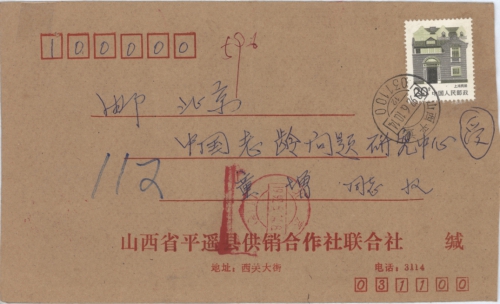 100000
20
上海民居
中国人民邮政
邮 北京
中国老龄问题研究中心
112
增 同志 收
山西省平遥县供销合作社联合社 缄
地址:西关大街 电话:3114
031100